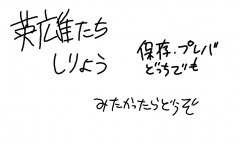 英雄たち
しりょう
保存・プレバ
どっちでも
みたかったらどうぞ